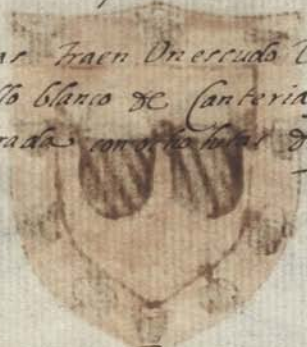 as Traen Un escudo
llo blanco de Canteria
rada con ocho